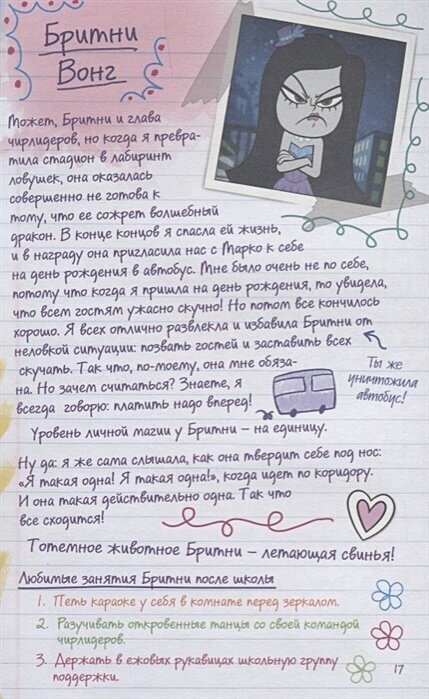 Бритни
Вонг
Может, Бритни и глава
чирлидеров, но когда я превра-
тила стадион в лабиринт
ловушек, она оказалась
совершенно не готова к
тому, что ее сожрет волшебный
дракон. В конце концов я спасла ей жизнь,
и в награду она пригласила нас с Марко к себе
на день рождения в автобус. Мне было очень не по себе,
потому что когда я пришла на день рождения, то увидела,
что всем гостям ужасно скучно! Но потом все кончилось
хорошо. Я всех отлично развлекла и избавила Бритни от
неловкой ситуации: позвать гостей и заставить всех
скучать. Так что, по-моему, она мне обяза-
на. Но зачем считаться? Знаете, я
всегда говорю: платить надо вперед!
Ты же
уничтожила
автобус!
Уровень личной магии у Бритни – на единицу.
Ну да: я же сама слышала, как она твердит себе под нос:
«Я такая одна! Я такая одна!», когда идет по коридору.
И она такая действительно одна. Так что
все сходится!
Тотемное животное Бритни – летающая свинья!
Любимые занятия Бритни после школы
1. Петь караоке у себя в комнате перед зеркалом.
2. Разучивать откровенные танцы со своей командой
чирлидеров.
3. Держать в ежовых рукавицах школьную группу
поддержки.
17